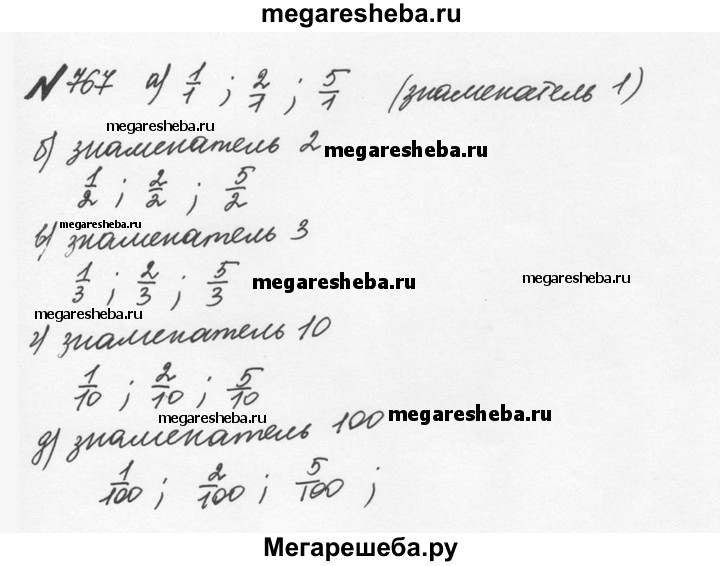 megaresheba.ru
№ 767 а) 1/1 ; 2/1 ; 5/1 (знаменатель 1)
megaresheba.ru
б) знаменатель 2 megaresheba.ru
1/2 ; 2/2 ; 5/2
megaresheba.ru
в) знаменатель 3
1/3 ; 2/3 ; 5/3 megaresheba.ru megaresheba.ru
megaresheba.ru
г) знаменатель 10
1/10 ; 2/10 ; 5/10
megaresheba.ru
д) знаменатель 100 megaresheba.ru
1/100 ; 2/100 ; 5/100 ;
Мегарешеба.ру